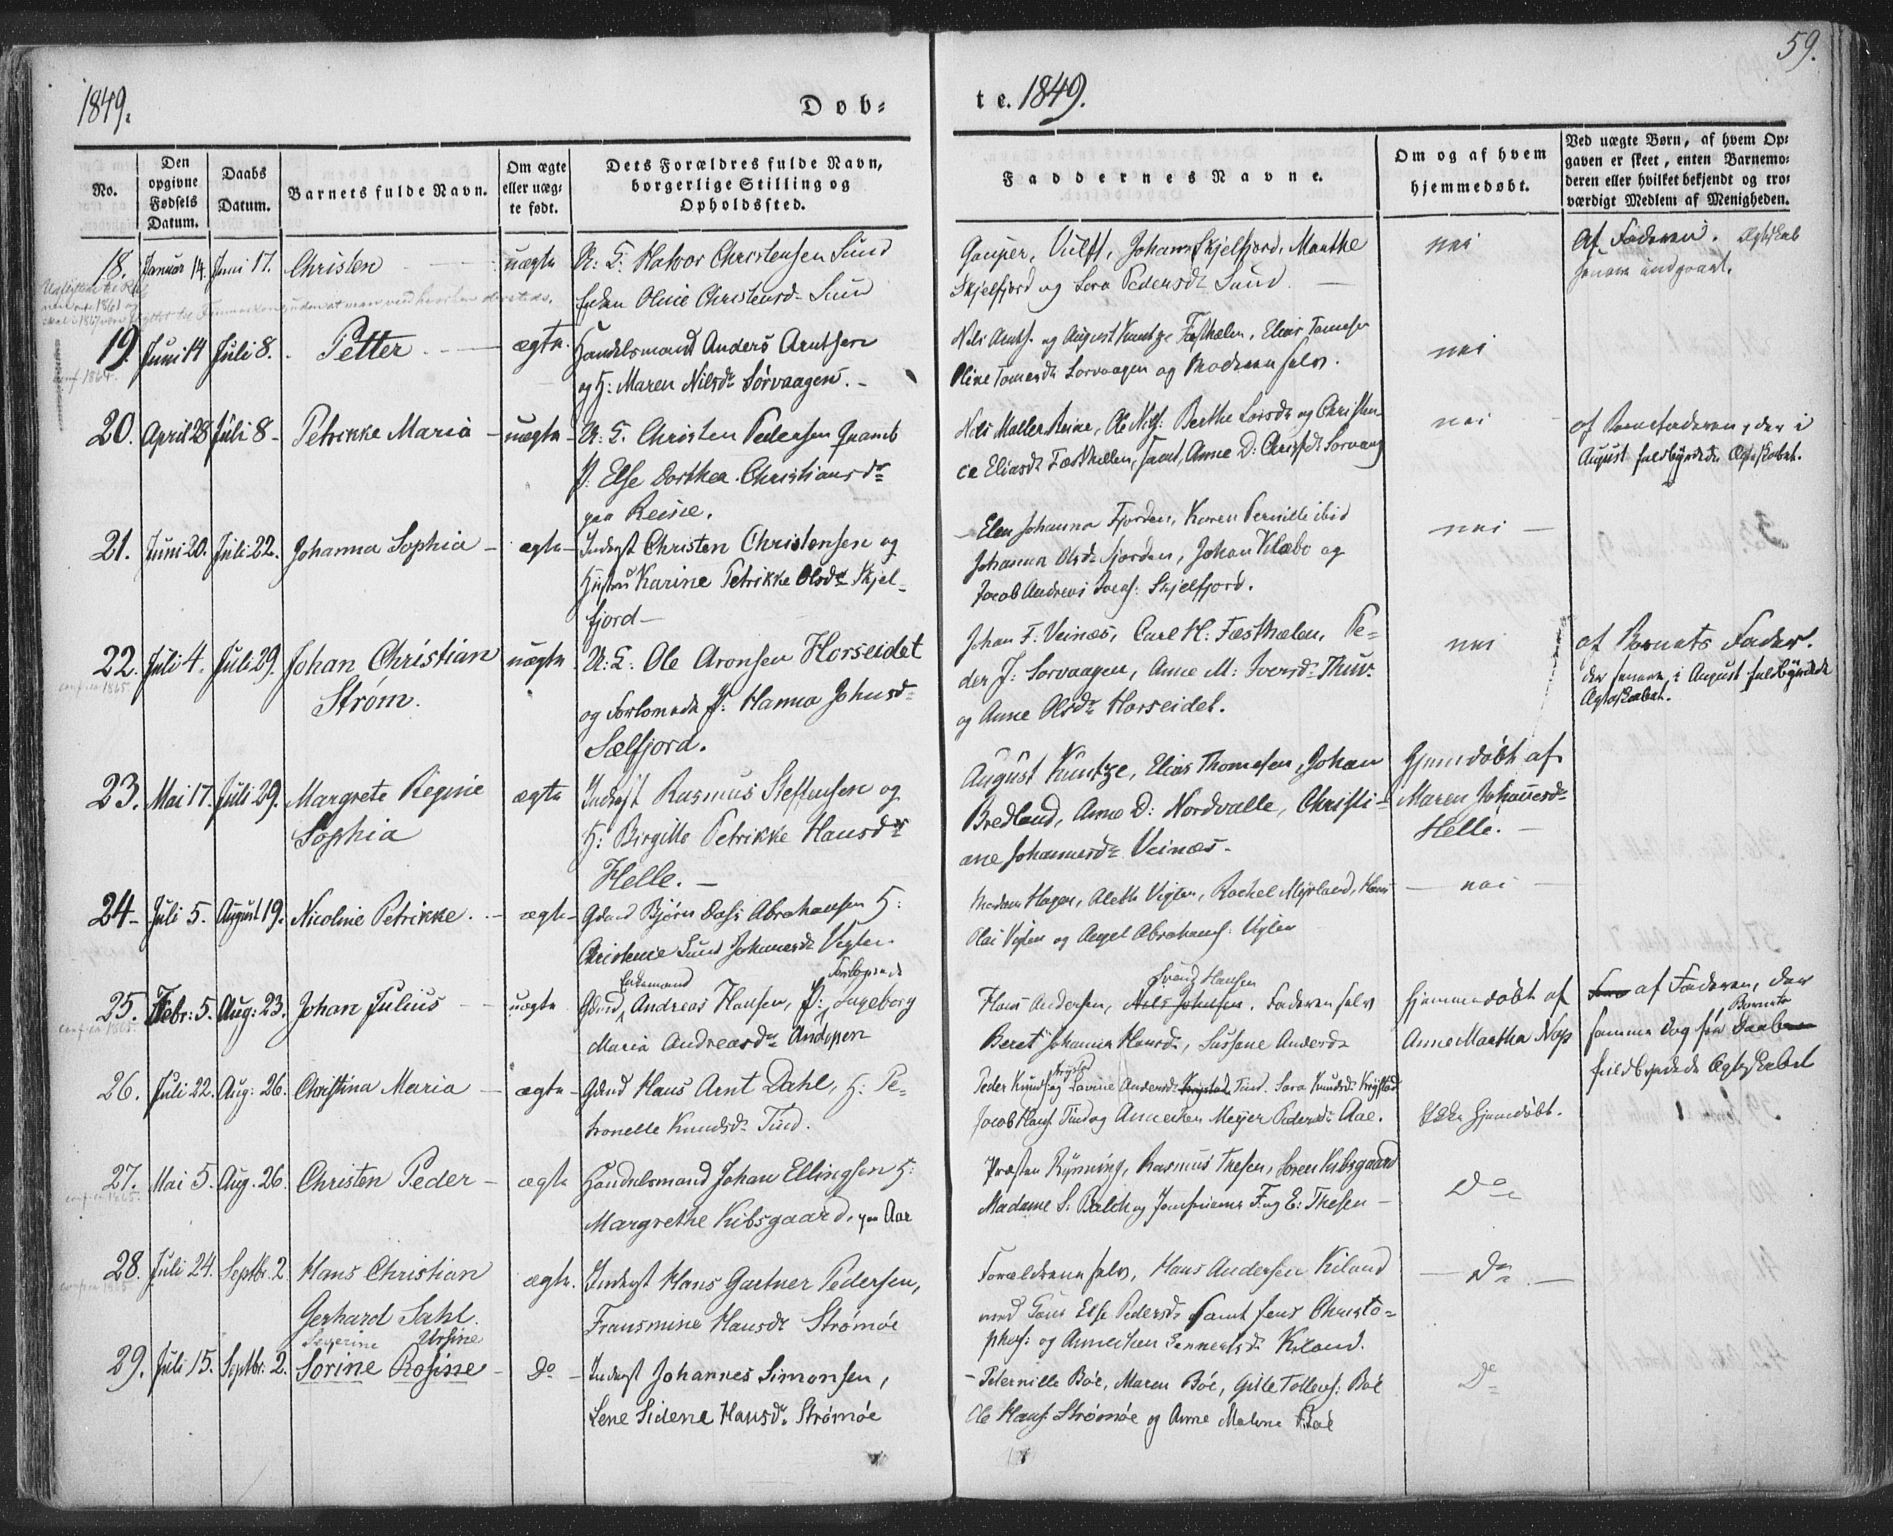 59.
1849.
Døb-
te. 1849.
No.
Den opgivne Fødsels Datum.
Daabs Datum.
Barnets fulde Navn.
Om ægte eller uæg-te født.
Dets Forældres fulde Navn, borgerlige Stilling og Opholdssted.
Faddernes Navne.
Om og af hvem hjemmedøbt.
Ved uægte Børn, af hvem Op-gaven er skeet, enten Barnemo-deren eller hvilket bekjendt og tro-værdigt Medlem af Menigheden.
18. Januar 14. Juni 17. Christen uægte U: G: Halvor Christensen Sund
Enken Oline Christensdr Sund
Gauper, Vulff, Johan Skjelfjord, Marthe
Skjelfjord og Sera Pedersdr Sund.
nei
Af Faderen. Ægteskab
senere indgaaet.
19. Juni 14 Juli 8. Petter ægte. Handelsmand Anders Arntsen
conf 1864.
og H: Maren Nilsdr Sørvaagen.
Nils Arnts. og August Kuntze Fæsthælen, Elias Tomesen
Oline Tomesdr Sørvaagen og Moderen selv.
nei
20. April 28 Juli 8 Petrikke Maria uægte U: G: Christen Pedersen
P: Else Dorthea Christiansdr
paa Reine.
Nils Møller Reine, Ole Nils: Berthe Larsdr og Christen-
ce Eliasdr Fæsthælen, samt Anne D: Christsdr Sørvaag
nei
af Barnefaderen, der i
August fuldbyrdede Ægteskabet.
21. Juni 20. Juli 22. Johanna Sophia ægte Inderst Christen Christensen og
Hustru Karine Petrikke Olsdr Skjel-
fjord
Elen Johanna Fjorden, Karen Pernille ibid
Johanna Olsdr Fjorden, Johan Klæbo og
Jacob Andreas Skjelfjord.
nei
22. Juli 4. Juli 29. Johan Christian
Strøm.
conf. 1865
uægte U: G: Ole Aronsen Horseidet
og Forlovede P: Hanna Johnsdr
Sælfjord.
Johan F: Veinæs, Carl H: Fæsthælen, Pe-
der J: Sørvaagen, Anne M: Iversdr Thuv.
og Anne Olsdr Horseidet.
nei
af Barnets Fader.
der senere i August fuldbyrdede
Ægteskabet.
23. Mai 17. Juli 29. Margrete Regine
Sophia
ægte Inderst Rasmus Steffensen og
H: Birgitte Petrikke Hansdr
Helle.
August Kuntze, Elias Thomesen, Johan
Bredland, Anne D: Nordvalle, Christi-
ane Johannesdr Veinæs.
Hjemdøbt af
Maren Johannesdr
Helle.
24 Juli 5. August 19. Nicoline Petrikke. ægte Gdmd Bjørn Dass Abrahamsen H:
Christence Sund Johannesdr Vigten.
Madam Hagen, Aleth Vigten, Rachel Myrland, Hans
Olai Vigten og Angel Abrahams: Vigten
nei
25. Febr: 5. Aug: 23. Johan Julius
conf. 1865.
uægte Gdmd Enkemand Andreas Hansen, P: Forlovede Ingeborg
Maria Andreasdr Andopen
Hans Andersen, Nils Johnsen. Svend Hansen Faderen selv
Beret Johanna Hansdr, Sussene Andersdr
Hjemmedøbt af
Anne Martha Nap
af Faderen, der
samme Dag som Barnets Daab
fuldbyrdede Ægteskabet
26. Juli 22. Aug: 26. Christina Maria ægte Gdmd Hans Arnt Dahl, H: Pe-
tronelle Knudsdr Tind.
Peder Knuds: og Lovine Andersdr Krystad Tind. Sara Knudsdr Krystad
Jacob Hans: Tind og Annechen Meyer Pedersdr Aae.
Ikke hjemdøbt.
27. Mai 5. Aug. 26. Christen Peder
conf. 1865.
ægte Handelsmand Johan Ellingsen H:
Margrethe Kibsgaard, paa Aae
Præsten Rynning, Rasmus Thesen, Søren Kibsgaard
Madame S: Balch og Jomfruerne F. og E: Thesen
Do
28. Juli 24. Septbr. 2 Hans Christian
Gerhard Sahl.
conf. 1865
ægte. Inderst Hans Gartner Pedersen,
Fransmine Hansdr Strømøe
Forældrene selv, Hans Andersen Kiland
med Else Pedersdr samt Jens Christo-
phers: og Annechen Kiland.
Do
29. Juli 15. Septbr: 2. Severine Ursine
Sorine Rosine
Do Inderst Johannes Simonsen,
Lene Sidene Hansdr Strømøe
Peternille Bøe, Maren Bøe, Gitle Tollevs: Bøe
Ole Hans: Strømøe og Anne Malene Bøe
Do